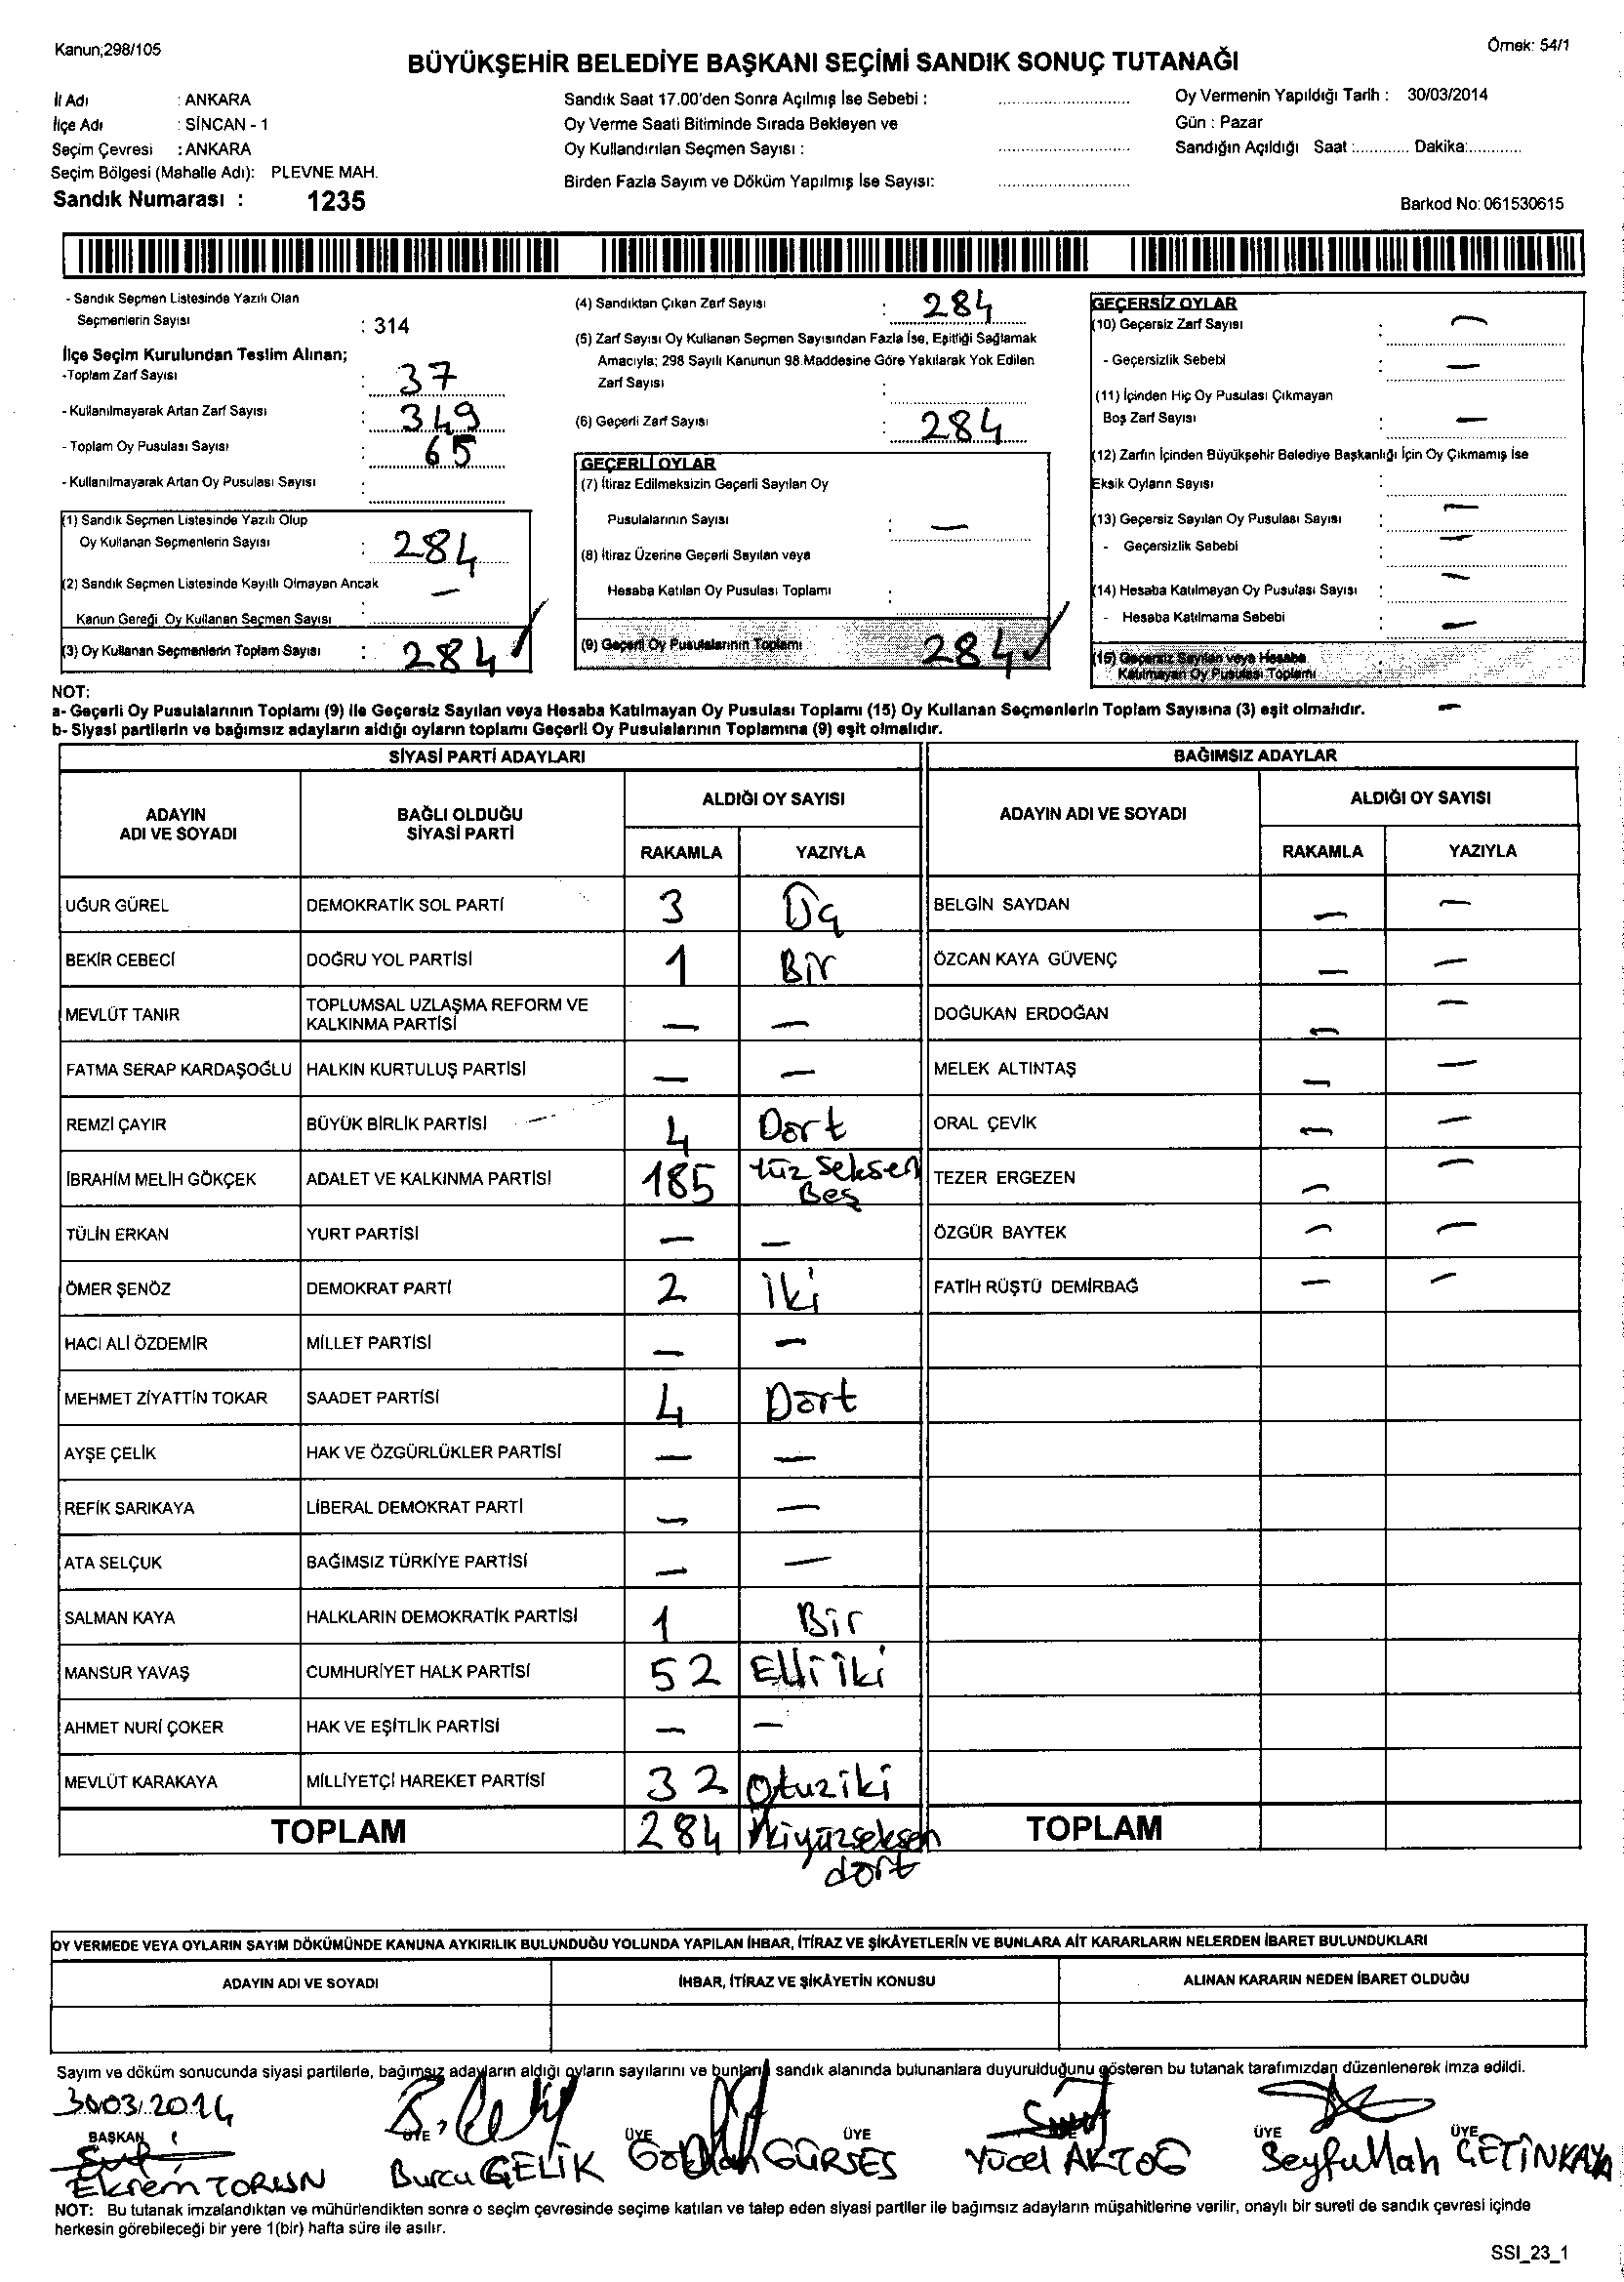 Kanun;298/105
Örnek: 54/1
BÜYÜKŞEHİR BELEDİYE BAŞKANI SEÇİMİ SANDIK SONUÇ TUTANAĞI
İl Adı : ANKARA
İlçe Adı : SİNCAN - 1
Seçim Çevresi : ANKARA
Seçim Bölgesi (Mahalle Adı): PLEVNE MAH.
Sandık Numarası : 1235
Sandık Saat 17.00'den Sonra Açılmış İse Sebebi :
Oy Verme Saati Bitiminde Sırada Bekleyen ve
Oy Kullandırılan Seçmen Sayısı :
Birden Fazla Sayım ve Döküm Yapılmış İse Sayısı:
Oy Vermenin Yapıldığı Tarih : 30/03/2014
Gün : Pazar
Sandığın Açıldığı Saat :............ Dakika:...........
Barkod No: 061530615
- Sandık Seçmen Listesinde Yazılı Olan
Seçmenlerin Sayısı : 314
İlçe Seçim Kurulundan Teslim Alınan;
-Toplam Zarf Sayısı : 37
- Kullanılmayarak Artan Zarf Sayısı : 349
- Toplam Oy Pusulası Sayısı : 65
- Kullanılmayarak Artan Oy Pusulası Sayısı :
(1) Sandık Seçmen Listesinde Yazılı Olup
Oy Kullanan Seçmenlerin Sayısı : 284
(2) Sandık Seçmen Listesinde Kayıtlı Olmayan Ancak —
Kanun Gereği Oy Kullanan Seçmen Sayısı :
(3) Oy Kullanan Seçmenlerin Toplam Sayısı : 284
(4) Sandıktan Çıkan Zarf Sayısı : 284
(5) Zarf Sayısı Oy Kullanan Seçmen Sayısından Fazla İse, Eşitliği Sağlamak
Amacıyla; 298 Sayılı Kanunun 98.Maddesine Göre Yakılarak Yok Edilen
Zarf Sayısı :
(6) Geçerli Zarf Sayısı : 284
GEÇERLİ OYLAR
(7) İtiraz Edilmeksizin Geçerli Sayılan Oy
Pusulalarının Sayısı : —
(8) İtiraz Üzerine Geçerli Sayılan veya
Hesaba Katılan Oy Pusulası Toplamı :
(9) Geçerli Oy Pusulalarının Toplamı 284
GEÇERSİZ OYLAR
(10) Geçersiz Zarf Sayısı : —
- Geçersizlik Sebebi : —
(11) İçinden Hiç Oy Pusulası Çıkmayan
Boş Zarf Sayısı : —
(12) Zarfın İçinden Büyükşehir Belediye Başkanlığı İçin Oy Çıkmamış İse
Eksik Oyların Sayısı :
(13) Geçersiz Sayılan Oy Pusulası Sayısı : —
- Geçersizlik Sebebi : —
(14) Hesaba Katılmayan Oy Pusulası Sayısı : —
- Hesaba Katılmama Sebebi : —
(15) Geçersiz Sayılan veya Hesaba
Katılmayan Oy Pusulası Toplamı :
NOT:
a- Geçerli Oy Pusulalarının Toplamı (9) ile Geçersiz Sayılan veya Hesaba Katılmayan Oy Pusulası Toplamı (15) Oy Kullanan Seçmenlerin Toplam Sayısına (3) eşit olmalıdır. —
b- Siyasi partilerin ve bağımsız adayların aldığı oyların toplamı Geçerli Oy Pusulalarının Toplamına (9) eşit olmalıdır.
SİYASİ PARTİ ADAYLARI
BAĞIMSIZ ADAYLAR
ADAYIN
ADI VE SOYADI
BAĞLI OLDUĞU
SİYASİ PARTİ
ALDIĞI OY SAYISI
RAKAMLA YAZIYLA
ADAYIN ADI VE SOYADI
ALDIĞI OY SAYISI
RAKAMLA YAZIYLA
UĞUR GÜREL DEMOKRATİK SOL PARTİ 3 Üç BELGİN SAYDAN — —
BEKİR CEBECİ DOĞRU YOL PARTİSİ 1 Bir ÖZCAN KAYA GÜVENÇ — —
MEVLÜT TANIR TOPLUMSAL UZLAŞMA REFORM VE
KALKINMA PARTİSİ — — DOĞUKAN ERDOĞAN — —
FATMA SERAP KARDAŞOĞLU HALKIN KURTULUŞ PARTİSİ — — MELEK ALTINTAŞ — —
REMZİ ÇAYIR BÜYÜK BİRLİK PARTİSİ 4 Dört ORAL ÇEVİK — —
İBRAHİM MELİH GÖKÇEK ADALET VE KALKINMA PARTİSİ 185 Yüz Seksen
Beş TEZER ERGEZEN — —
TÜLİN ERKAN YURT PARTİSİ — — ÖZGÜR BAYTEK — —
ÖMER ŞENÖZ DEMOKRAT PARTİ 2 İki FATİH RÜŞTÜ DEMİRBAĞ — —
HACI ALİ ÖZDEMİR MİLLET PARTİSİ — —
MEHMET ZİYATTİN TOKAR SAADET PARTİSİ 4 Dört
AYŞE ÇELİK HAK VE ÖZGÜRLÜKLER PARTİSİ — —
REFİK SARIKAYA LİBERAL DEMOKRAT PARTİ — —
ATA SELÇUK BAĞIMSIZ TÜRKİYE PARTİSİ — —
SALMAN KAYA HALKLARIN DEMOKRATİK PARTİSİ 1 Bir
MANSUR YAVAŞ CUMHURİYET HALK PARTİSİ 52 Elli iki
AHMET NURİ ÇOKER HAK VE EŞİTLİK PARTİSİ — —
MEVLÜT KARAKAYA MİLLİYETÇİ HAREKET PARTİSİ 32 Otuziki
TOPLAM 284 İkiyüzseksen
dört
TOPLAM
OY VERMEDE VEYA OYLARIN SAYIM DÖKÜMÜNDE KANUNA AYKIRILIK BULUNDUĞU YOLUNDA YAPILAN İHBAR, İTİRAZ VE ŞİKÂYETLERİN VE BUNLARA AİT KARARLARIN NELERDEN İBARET BULUNDUKLARI
ADAYIN ADI VE SOYADI İHBAR, İTİRAZ VE ŞİKÂYETİN KONUSU ALINAN KARARIN NEDEN İBARET OLDUĞU
Sayım ve döküm sonucunda siyasi partilerle, bağımsız adayların aldığı oyların sayılarını ve bunların sandık alanında bulunanlara duyurulduğunu gösteren bu tutanak tarafımızdan düzenlenerek imza edildi.
30/03/2014
BAŞKAN ÜYE ÜYE ÜYE ÜYE ÜYE
Ekrem TORUN Burcu ÇELİK Gökhan GÜRSES Yücel AKTOĞ Seyfullah ÇETİNKAYA
NOT: Bu tutanak imzalandıktan ve mühürlendikten sonra o seçim çevresinde seçime katılan ve talep eden siyasi partiler ile bağımsız adayların müşahitlerine verilir, onaylı bir sureti de sandık çevresi içinde
herkesin görebileceği bir yere 1(bir) hafta süre ile asılır.
SSI_23_1